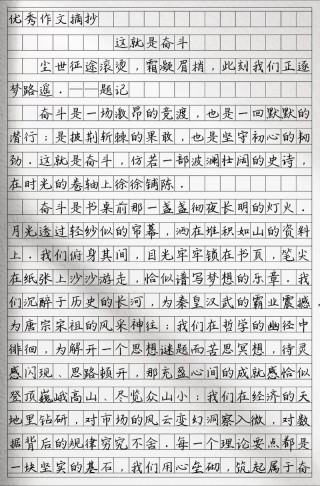 优秀作文摘抄
这就是奋斗
尘世征途滚烫，霜凝眉梢，此刻我们正逐
梦路遥．——题记
奋斗是一场激昂的竞渡，也是一回默默的
潜行；是披荆斩棘的果敢，也是坚守初心的韧
劲．这就是奋斗，仿若一部波澜壮阔的史诗，
在时光的卷轴上徐徐铺陈．
奋斗是书桌前那一盏盏彻夜长明的灯火．
月光透过轻纱似的帘幕，洒在堆积如山的资料
上．我们俯身其间，目光牢牢锁在书页，笔尖
在纸张上沙沙游走，恰似谱写梦想的乐章．我
们沉醉于历史的长河，为秦皇汉武的霸业震撼，
为唐宗宋祖的风采神往；我们在哲学的幽径中
徘徊，为解开一个思想谜题而苦思冥想，待灵
感闪现、思路顿开，那充盈心间的成就感恰似
登顶巍峨高山、尽览众山小；我们在经济的天
地里钻研，对市场的风云变幻洞察入微，对数
据背后的规律穷究不舍．每一个理论要点都是
一块坚实的基石，我们用心垒砌，筑起属于奋